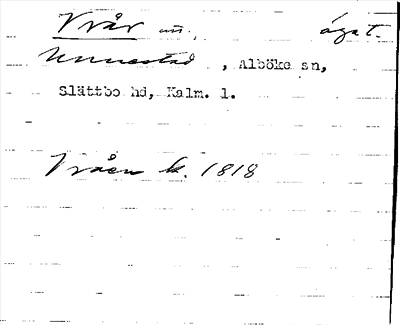 Vrår un., ägat.
Unnestad, Alböke sn,
Slättbo hd, Kalm. l.
Vråen k. 1818